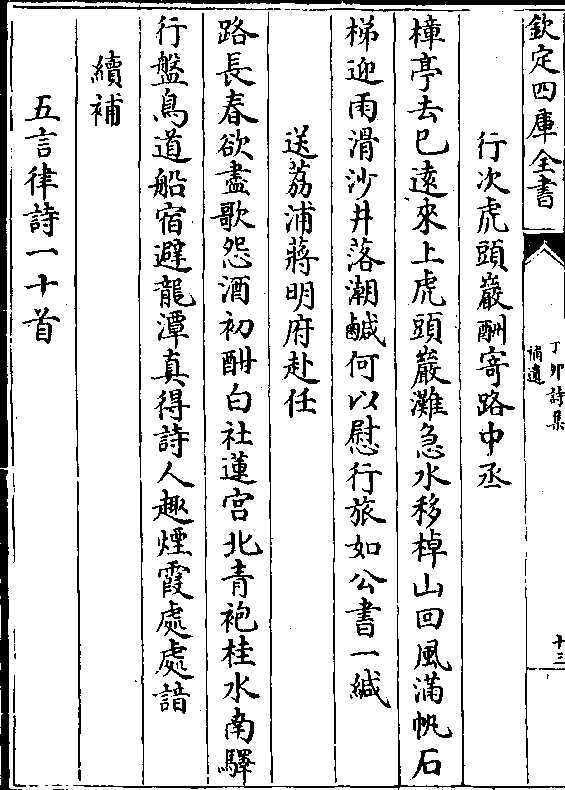 欽定四庫全書
丁卯詩集
補遺
十三
行次虎頭巖酬寄路中丞
樟亭去已遠來上虎頭巖灘急水移棹山回風滿帆石
梯迎雨滑沙井落潮鹹何以慰行旅如公書一緘
送荔浦蔣明府赴任
路長春欲盡歌怨酒初酣白社蓮宮北青袍桂水南驛
行盤鳥道船宿避龍潭真得詩人趣煙霞處處諳
續補
五言律詩一十首